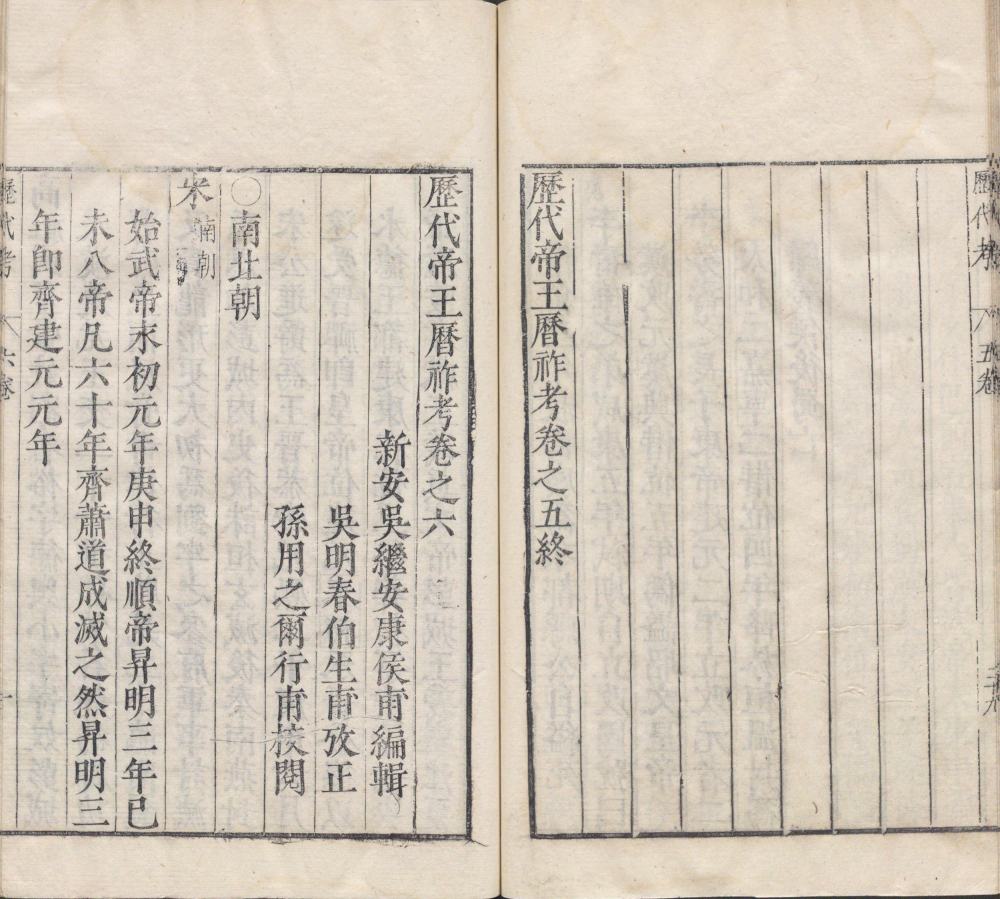 歷代考 五卷
歷代帝王曆祚考卷之五終
歷代帝王曆祚考卷之六
新安吳繼安康侯甫編輯
吳明春伯生甫攷正
孫用之爾行甫校閱
〇南北朝
宋 南朝
始武帝永初元年庚申終順帝昇明三年己
未八帝凡六十年齊蕭道成滅之然昇明三
年即齊建元元年
歷代考 六卷 一